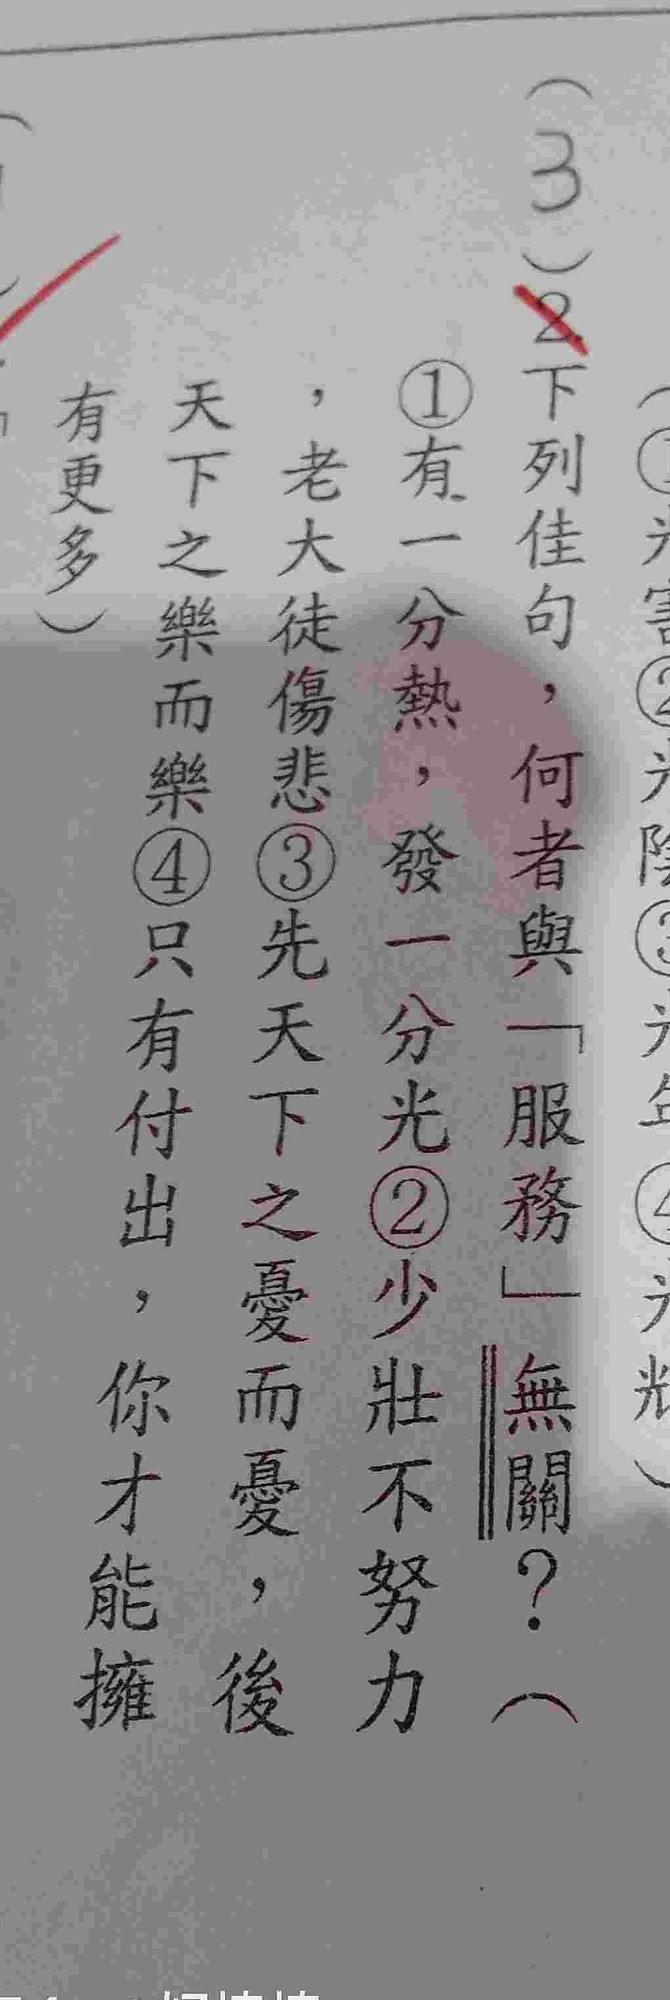 (3)2.下列佳句，何者與「服務」無關？（
①有一分熱，發一分光②少壯不努力
，老大徒傷悲③先天下之憂而憂，後
天下之樂而樂④只有付出，你才能擁
有更多）